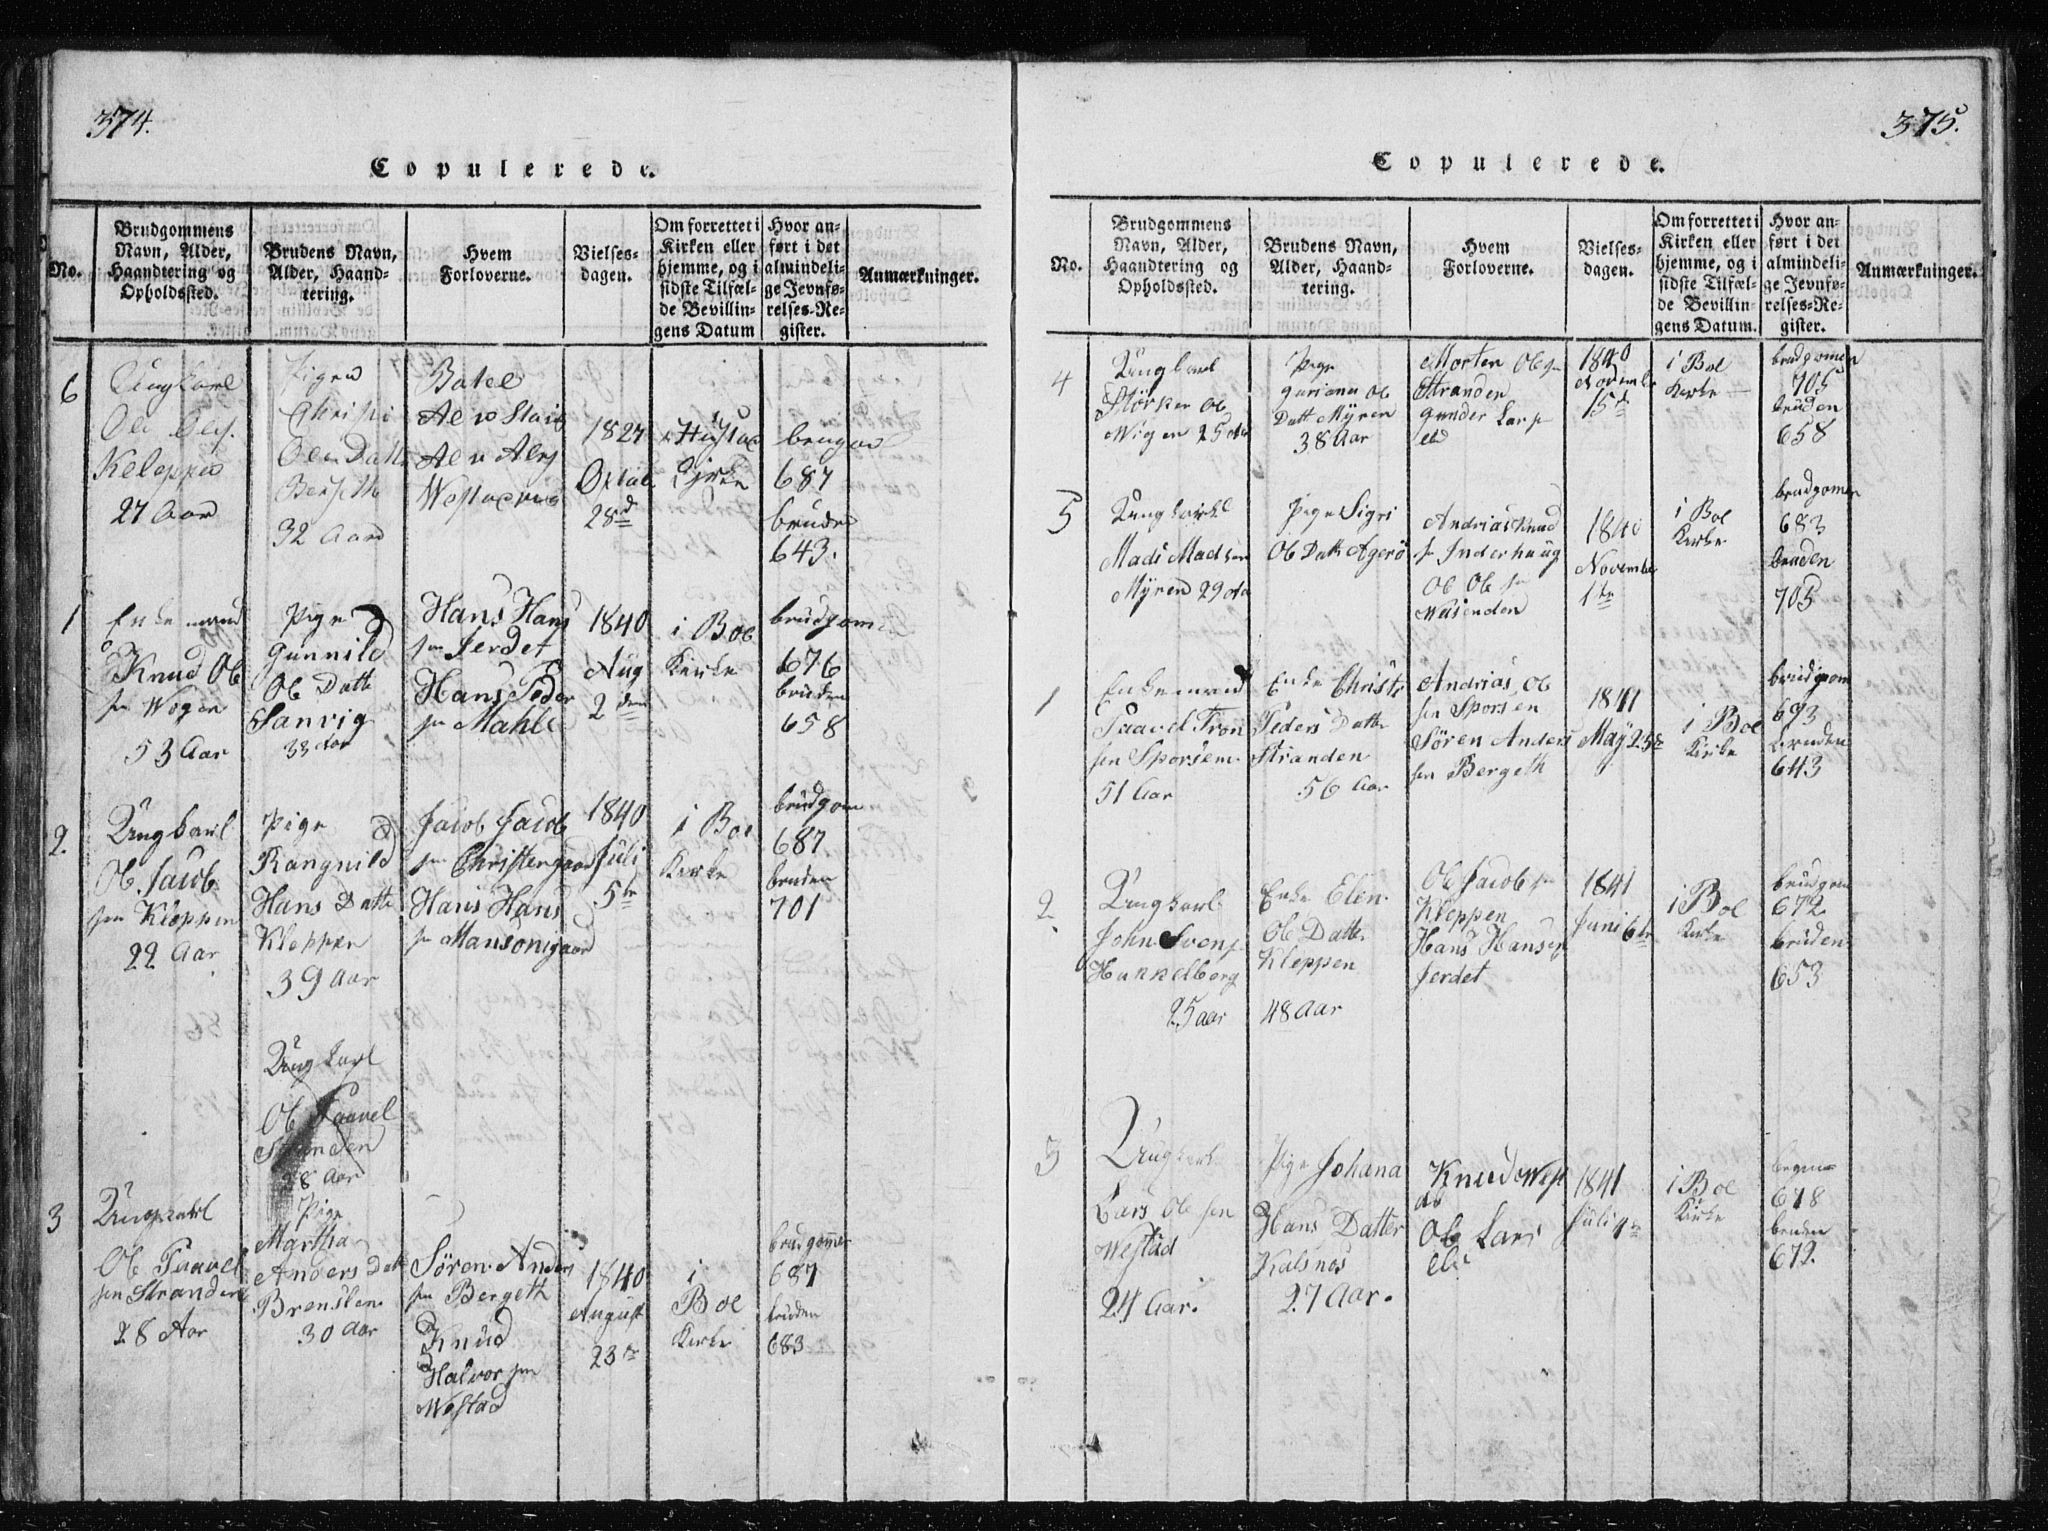 374.
Copulerede.
No.
Brudgommens Navn, Alder, Haandtering og Opholdssted.
Brudens Navn, Alder, Haandtering.
Hvem Forloverne.
Vielsesdagen.
Om forrettet i Kirken eller hjemme, og i sidste Tilfælde Bevillingens Datum
Hvor anført i det almindelige Jevnførelses-Register.
Anmærkninger.
6
Ungkarl
Kleppen
27 Aar
Pigen
32 Aar
1827
28d
Kirke
687
brude
643.
1
Enkemand
Knud Ol
sen Wogen
53 Aar
Pige
Gunnild
Ol Datte
Sanvig
33 Aar
Hans Hans
sen Jerdet
Hans Peder
sen Mahle
1840
Aug
2den
i Boe
Kirke
brudgom
676
bruden
658
2.
Ungkarl
Ol Jacob
sen Kleppen
22 Aar
Pige
Rangnild
Hans Datte
Kleppen
39 Aar
Jacob Jacob
sen Christengaard
Hans Hans
sen Mansonigaard
1840
Juli
5te
i Boe
Kirke
brudgom
687
bruden
701
Ungkarl
Ol Paavel
Stranden
28 Aar
3
Ungkarl
Ol Paavel
sen Stranden
28 Aar
Pige
Martha
Anders Datt
Brensten
30 Aar
Søren Anders
sen Bergeth
Knud
Halvor sen
Westad
1840
August
23de
i
Boe
Kirke
brudgommen
687
bruden
683
375.
Copulerede.
No.
Brudgommens Navn, Alder, Haandtering og Opholdssted.
Brudens Navn, Alder, Haandtering.
Hvem Forloverne.
Vielsesdagen.
Om forrettet i Kirken eller hjemme, og i sidste Tilfælde Bevillingens Datum.
Hvor anført i det almindelige Jevnførelses-Register.
Anmærkninger.
4
Ungkarl
Størker Ol
Wigen 25 Aar
Pige
Guriana Ol
Datt Myren
38 Aar
Morten Ol sen
Stranden
Gunder Lars
1840
Novembr
15de
i Boe
Kirke
brudgomen
705
bruden
658
5
Ungkarl
Mads Madsen
Myren 29 Aar
Pige Sigri
Ol Datt Agerø
Andrias Knud
sen Inderhaug
Ol Ol sen
1840
November
1te
i Boe
Kirke
brudgomen
683
bruden
705
1
Enkemand
Paavel Tron
sen Sporsem
51 Aar
Enke Christi
Peders Datte
Stranden
56 Aar
Andrias Ol
sen Sporsen
Søren Anders
sen Bergeth
1841
May 25de
i Boe
Kirke
brudgom
693
bruden
643
2.
Ungkarl
John Svens
Hunkelberg
25 aar
Enke Elen
Ol Datte
Kleppen
48 Aar
Ol Jacob sen
Kleppen
Hans Hansen
Jerdet
1841
Juni 6te
i Boe
Kirke
brudgom
672
bruden
653
3
Ungkarl
Lars Ol sen
Westad
24 Aar.
Pige Johana
Hans Datter
Kalsnes
27 Aar.
Knud West
ad
Ol Lars
1841
Juli 4de
i Boe
Kirke
678
bruden
672.